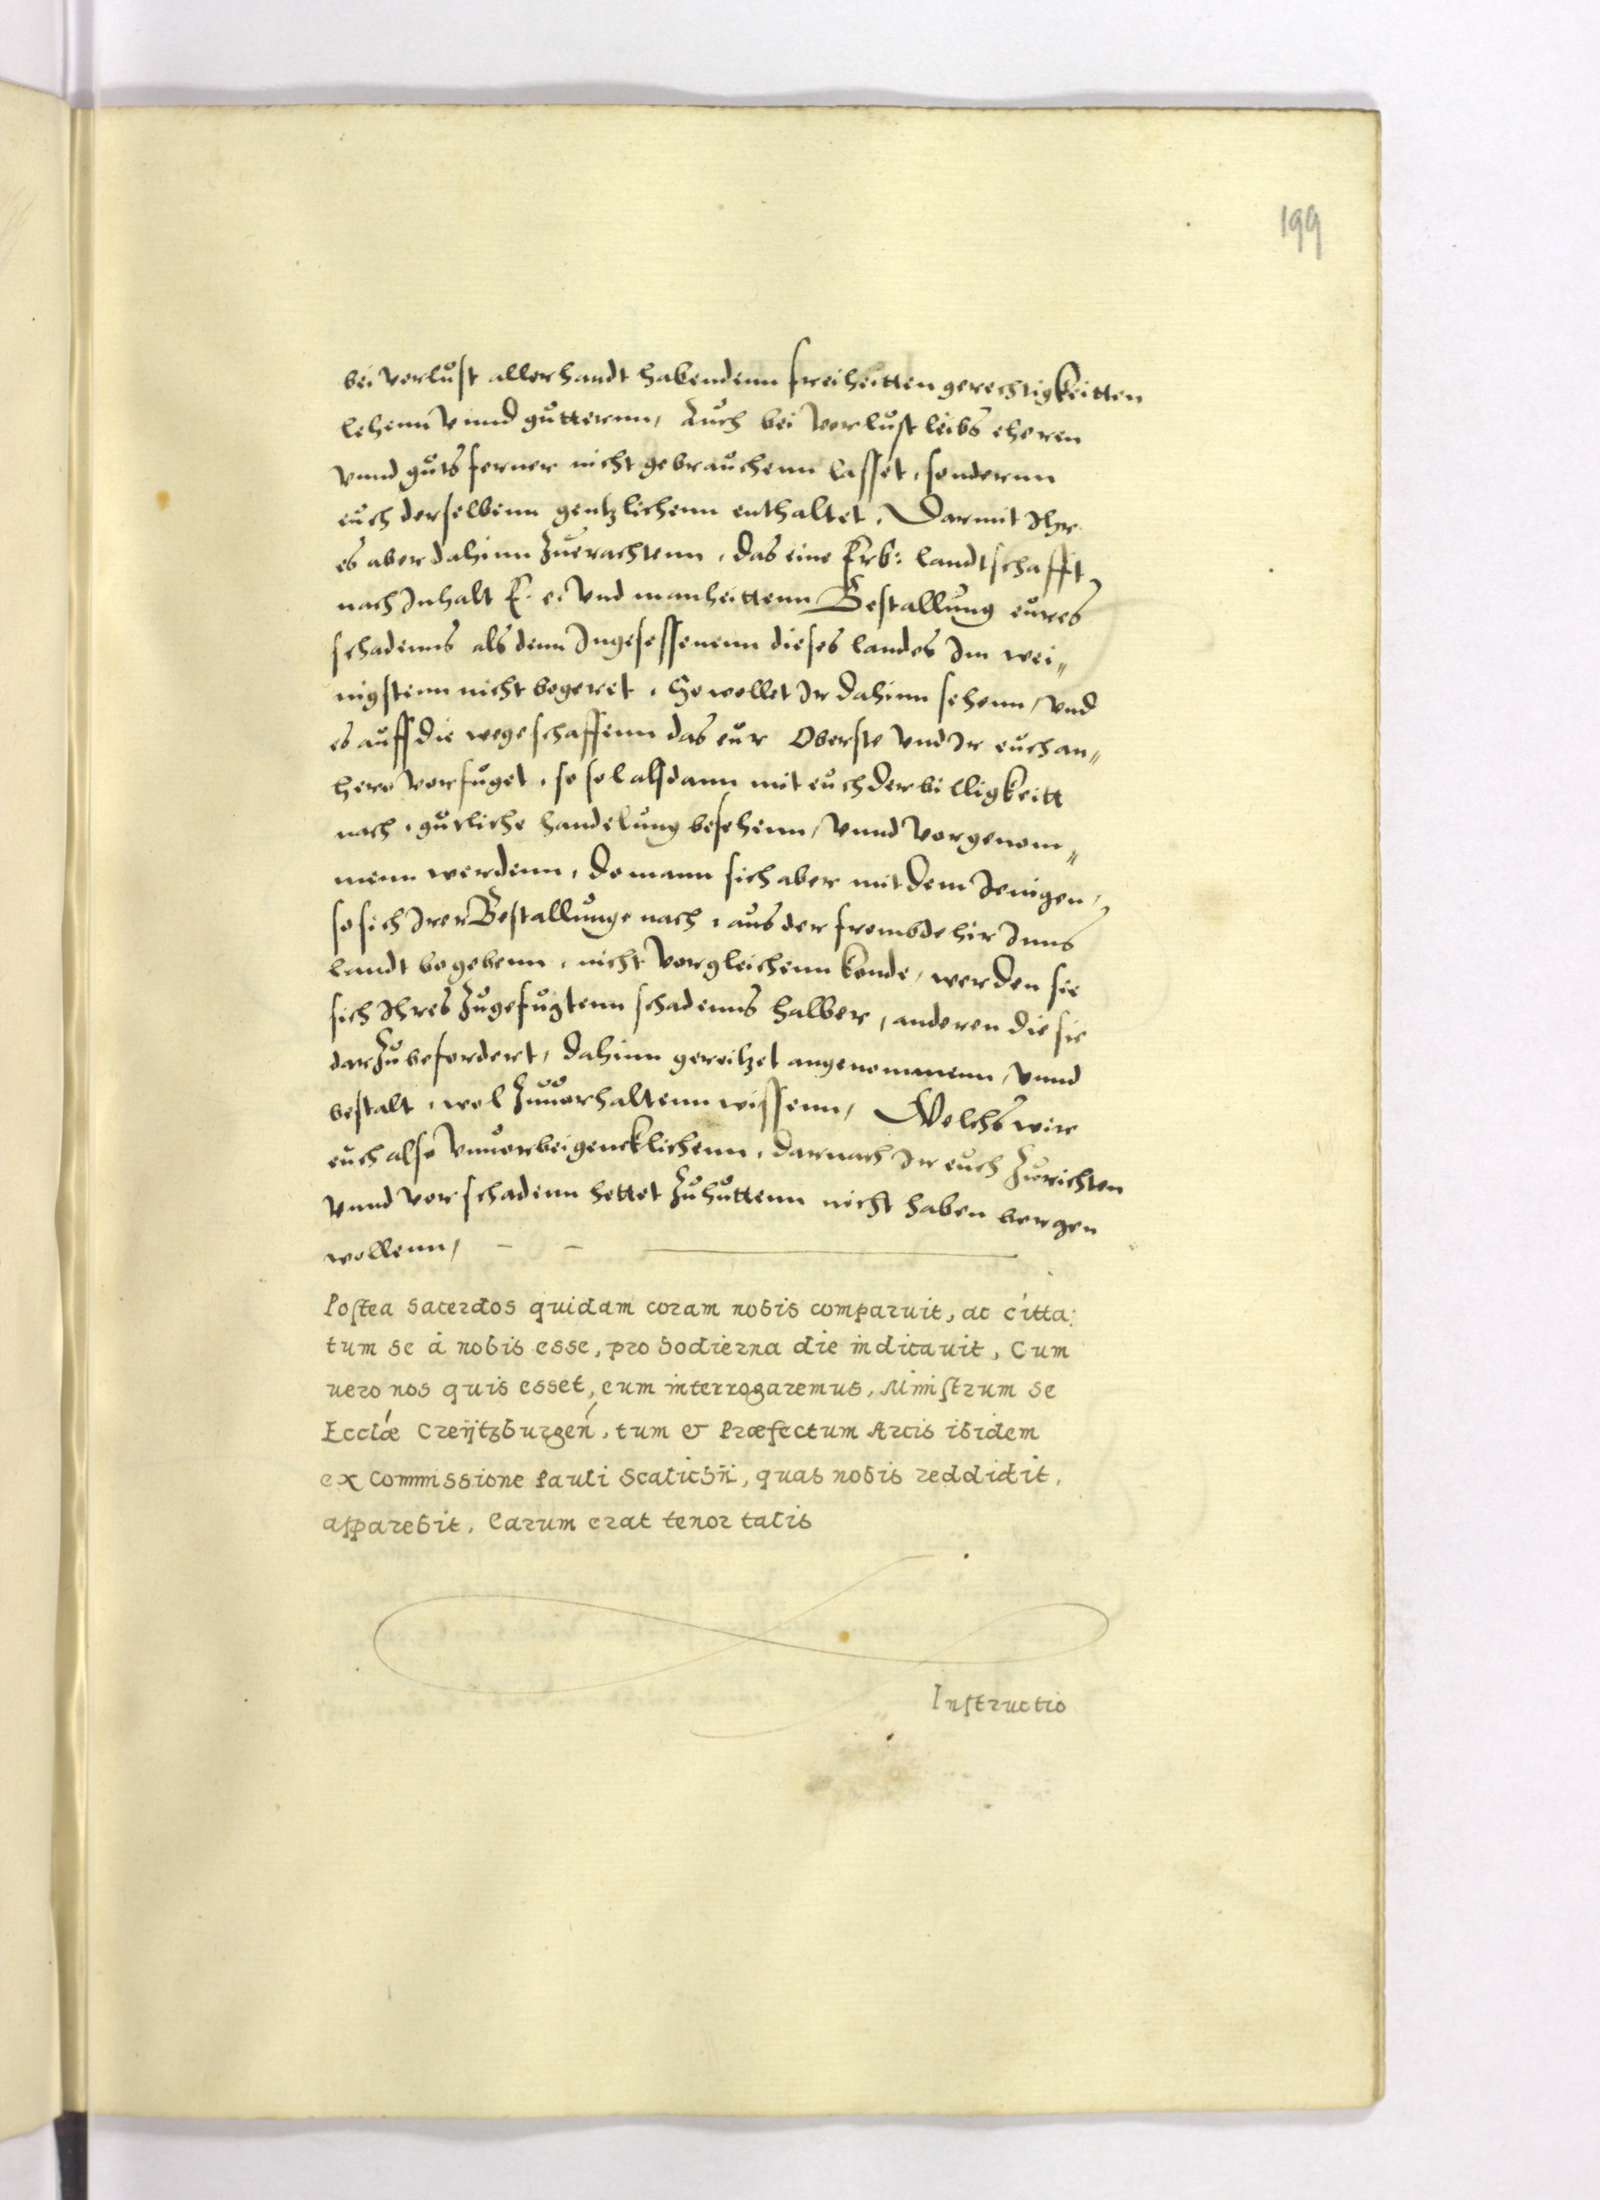 199
bei verlust allerhandt habendenn freiheitten gerechtigkeitten
lehenn vnnd gutternn, Auch bei verlust leibs eheren
vnnd guts ferner nicht gebrauchenn lasset, sondernn
euch derselbenn gentzlichenn enthaltet, Darmit Ihr
es aber dahinn zuerachtenn, das eine Erb: landtschafft
nach Inhalt E. e. vnd manheittenn Bestallung eures
schadenns als denn Ingesessenenn dieses landes Im wei„
nigstenn nicht begeret, So wollet Ir dahinn sehenn, vnd
es auff die wege schaffenn das eur Oberste vnd Ir euch an„
hero verfuget, so sol alsdann mit euch der billigkeitt
nach, gutliche handelung besehenn, vnnd vorgenom„
menn werdenn, Do mann sich aber mit dem Jenigen,
so sich Irer Bestallunge nach, aus der frembde hir Inns
landt begebenn, nicht vorgleichenn konde, werden sie
sich Ihres zugefugtenn schadenns halber, anderen die sie
darzu befordert, dahinn gereitzet angenommenn, vnnd
bestalt, wol zuuorhaltenn wissenn, Welchs wir
euch also vnuorbeigencklichenn, darnach Ir euch zurichten
vnnd vor schadenn hettet zuhuttenn nicht haben bergen
wollenn,
Postea Sacerdos quidam coram nobis comparuit, ac citta:
tum se á nobis esse, pro hodierna die indicauit, Cum
uero nos quis esset, eum interrogaremus, Ministrum se
Eccláe Creÿtzburgeń, tum & Præfectum Arcis ibidem
ex Commissione Pauli Scalichÿ, quas nobis reddidit,
apparebit, Earum erat tenor talis
Instructio